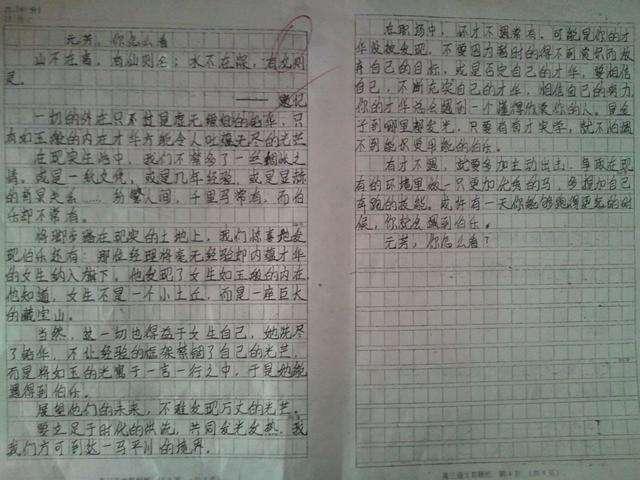 元芳，你怎么看
山不在高，有仙则名；水不在深，有龙则
灵。
——题记
一切的外在只不过是虚无缥缈的铅华，只
有如玉般的内在才华方能令人吐蕴无尽的光芒
在现实生活中，我们不常为了一些
情。或是一纸文凭，或是几年经验，或是显赫
的背景关系……纷繁人间，千里马常有，而伯
乐却不常有。
将脚步踏在现实的土地上，我们惊喜地发
现伯乐还有：那位经理将毫无经验却内蕴才华
的女生纳入旗下。他发现了女生如玉般的内在
他知道，女生不是一个小土丘，而是一座巨大
的藏宝山。
当然，这一切也得益于女生自己，她洗尽
了铅华，不让经验的框架禁锢了自己的光芒，
而是将如玉的光寓于一言一行之中，于是她能
遇得到伯乐。
展望他们的未来，不难发现万丈的光芒。
要立足于时代的洪流，共同发光发热，我
我们方可到达一马平川的境界。
在职场中，怀才不遇常有。可能是你的才
华没被发现，不要因为暂时的得不到赏识而放
弃自己的目标，或是否定自己的才华，要相信
自己，不断充实自己的才华，相信自己的努力
你的才华总会遇到一个懂得欣赏你的人。是金
子到哪里都发光，只要有真才实学，就不怕遇
不到能识使用能的伯乐。
有才不遇，就要多加主动出击，争取在现
有的环境里做一只更加优秀的马，多提加自己
奔跑的技能。或许有一天你能够跑得更远的时
候，你就会遇到伯乐。
元芳，你怎么看？